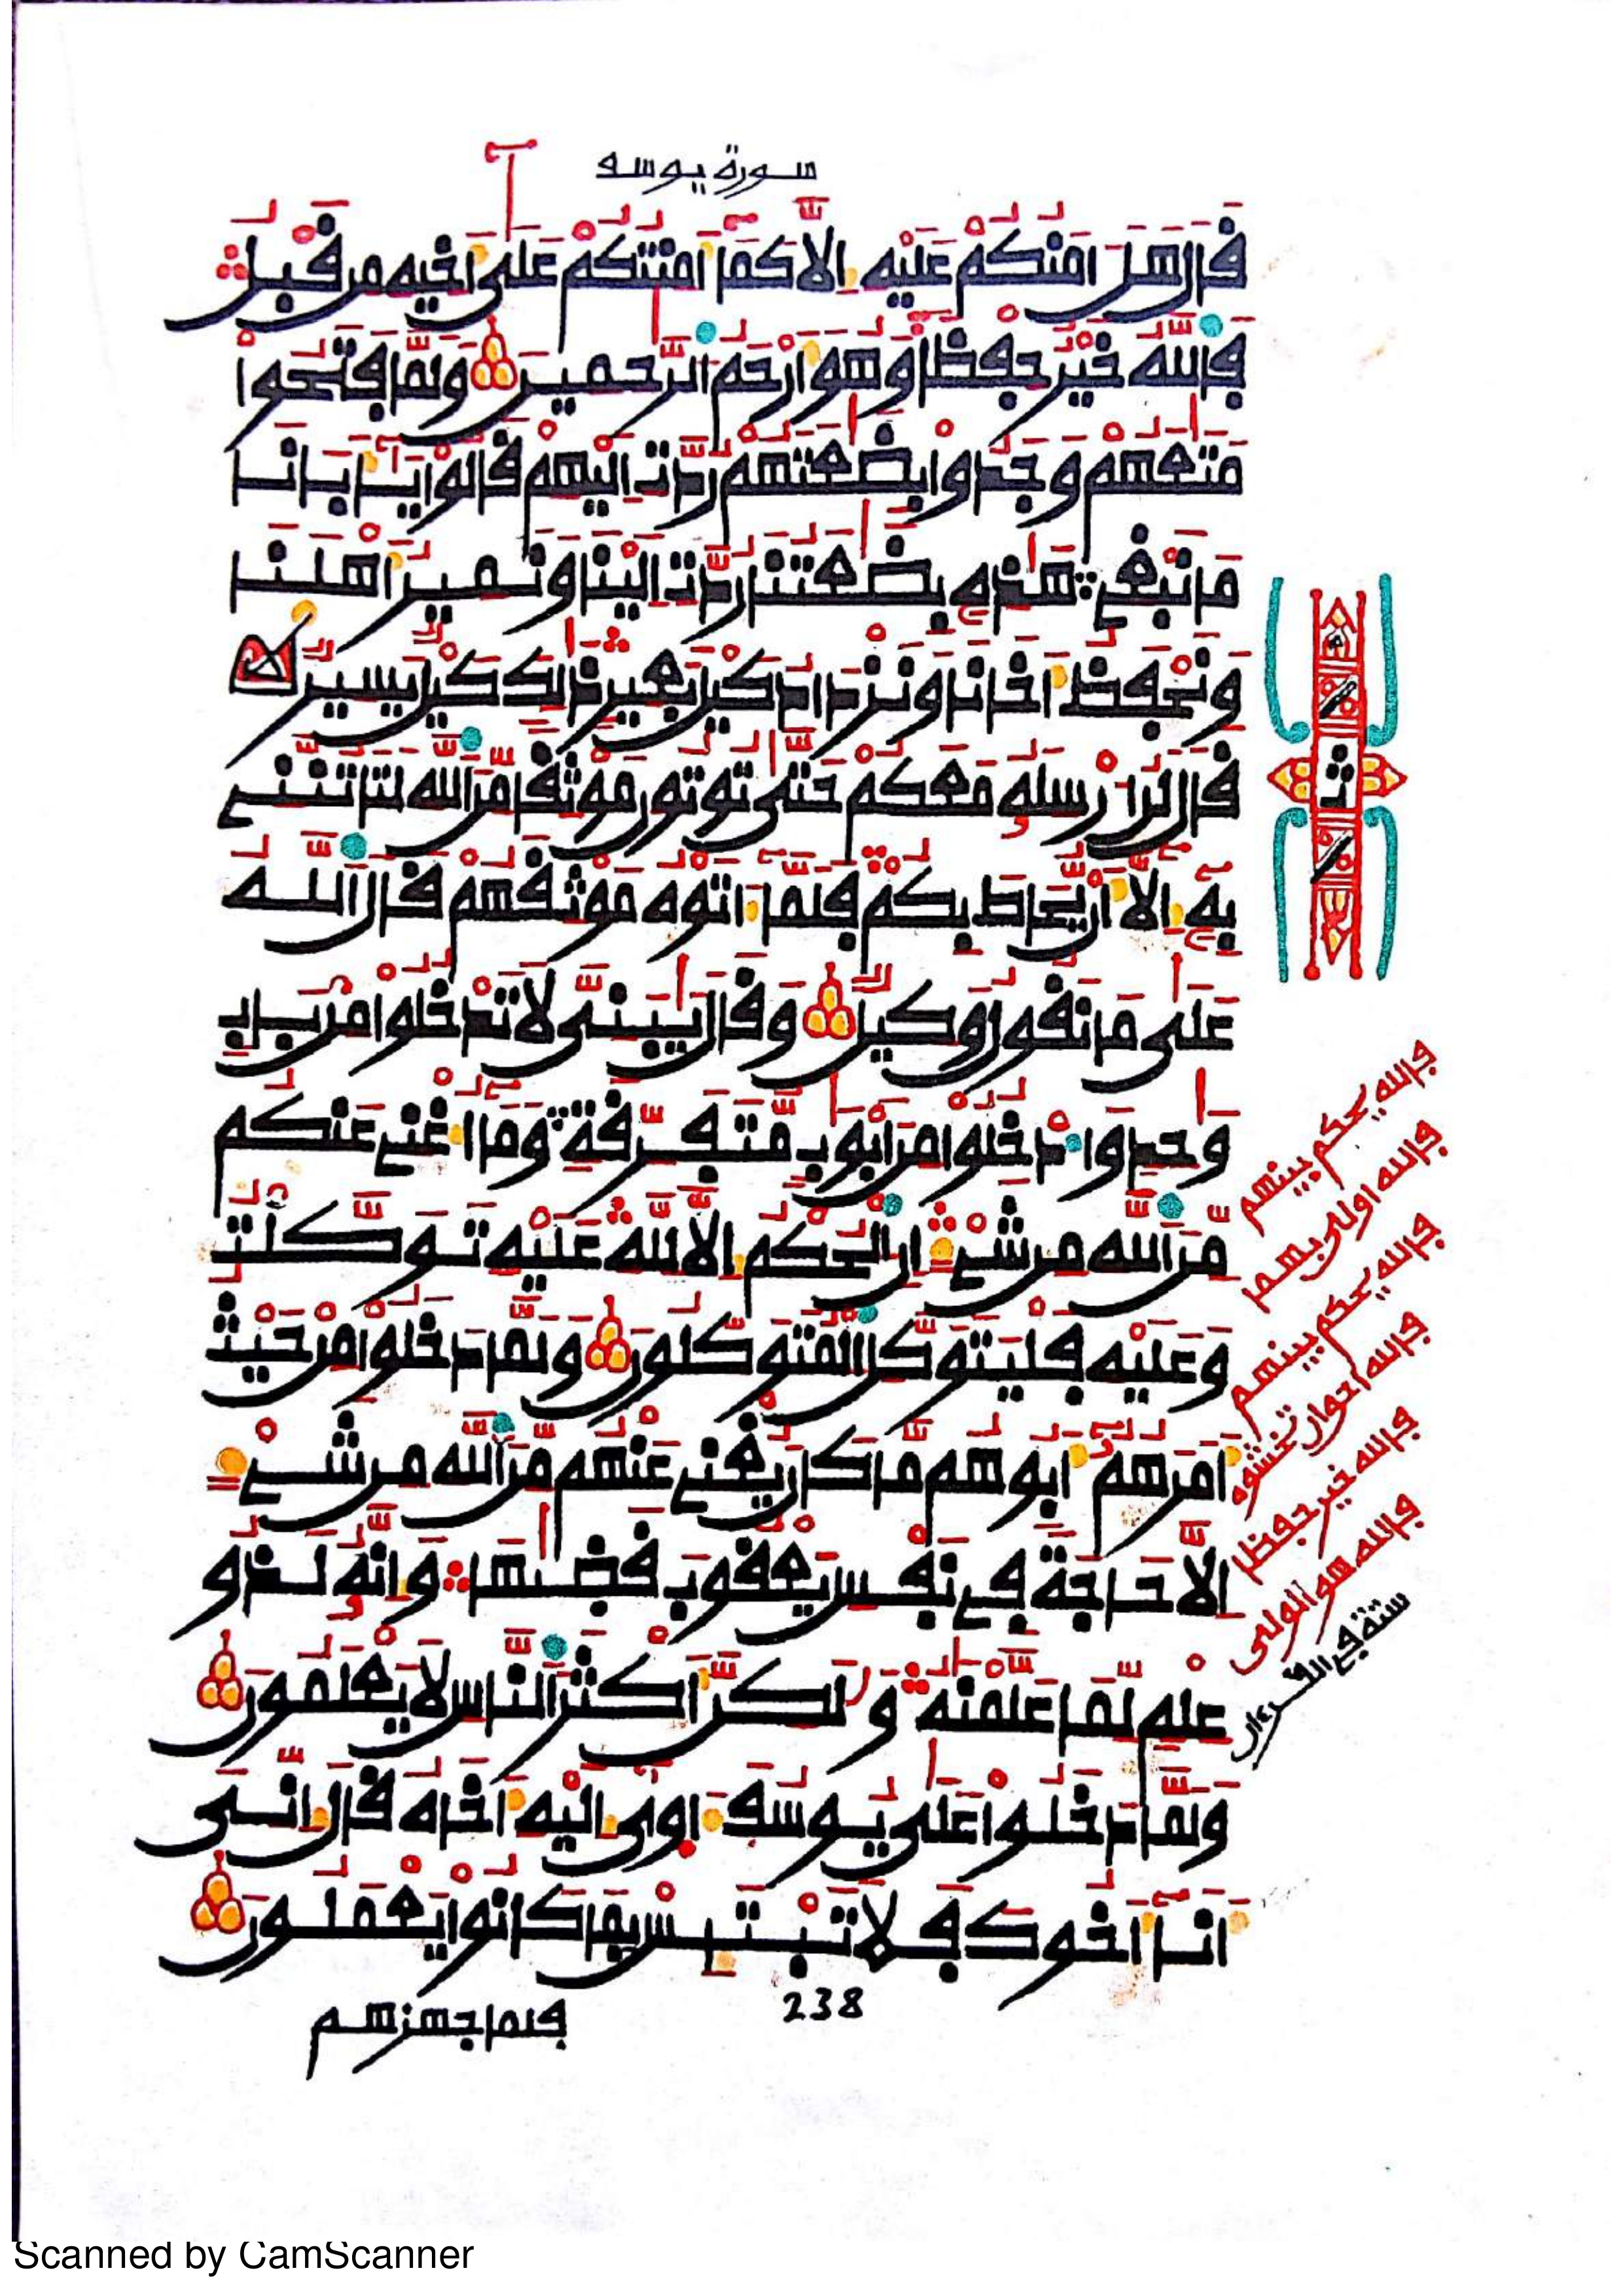 سورة يوسف
قَالَ هَلَ امَنُكُمْ عَلَيْهِ إِلَّا كَمَا أَمِنتُكُمْ عَلَىٰ أَخِيهِ مِن قَبْلُ
فَاللَّهُ خَيْرٌ حِفْظًا وَهُوَ أَرْحَمُ الرَّحِمِينَ وَلَمَّا فَتَحُوا
مَتَعَهُمْ وَجَدُوا بِضَعَتَهُمْ رُدَّتِ الَيْهِمْ قَالُوا يَأَبَانَا
مَا نَبْغِي هَذِهِ بِضَعَتُنَا رُدَّتِ الَيْنَا وَنَمِيرُ أَهْلَنَا
وَنَحْفَظُ أَخَانَا وَنَزْدَادُ كَيْلَ بَعِيرٍ ذَلِكَ كَيْلٌ يَسِيرٌ
قَالَ لَنُ ارْسِلَهُ مَعَكُمْ حَتَّىٰ تُوتُونِ مَوْثِقًا مِّنَ اللَّهِ لَتَاتُنَّنِي
بِهِ إِلَّا أَن يُحَاطَ بِكُمْ فَلَمَّا ءَاتَوْهُ مَوْثِقَهُمْ قَالَ اللَّهُ
عَلَىٰ مَا نَقُولُ وَكِيلٌ وَقَالَ يَبَنِيَّ لَا تَدْخُلُوا مِن بَابٍ
وَحِدٍ وَادْخُلُوا مِنَ ابْوَبٍ مُّتَفَرِّقَةٍ وَمَا أُغْنِي عَنكُم
مِّنَ اللَّهِ مِن شَيْءٍ إِنِ الْحُكْمُ إِلَّا لِلَّهِ عَلَيْهِ تَوَكَّلْتُ
وَعَلَيْهِ فَلْيَتَوَكَّلِ الْمُتَوَكِّلُونَ وَلَمَّا دَخَلُوا مِنْ حَيْثُ
أَمَرَهُمْ أَبُوهُم مَّا كَانَ يُغْنِي عَنْهُم مِّنَ اللَّهِ مِن شَيْءٍ
إِلَّا حَاجَةً فِي نَفْسِ يَعْقُوبَ قَضَىٰهَا وَإِنَّهُ لَذُو
عِلْمٍ لِّمَا عَلَّمْنَهُ وَلَكِنَّ أَكْثَرَ النَّاسِ لَا يَعْلَمُونَ
وَلَمَّا دَخَلُوا عَلَىٰ يُوسُفَ ءَاوَىٰ إِلَيْهِ أَخَاهُ قَالَ إِنِّي
أَنَا أَخُوكَ فَلَا تَبْتَئِسْ بِمَا كَانُوا يَعْمَلُونَ
238
فلما جهزهم
فالله يحكم بينهم
فالله اولى بهما
فالله يحكم بينهم
فالله احق ان تخشوه
فالله خير حفظا
فالله هو الولى
ستة في القرءان
ثمن
Scanned by CamScanner